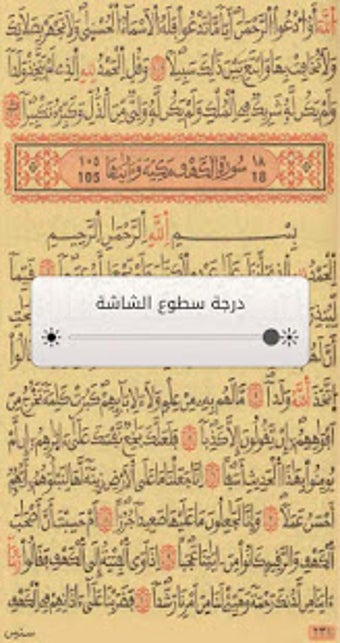 اللَّهَ أَوُ ادْعُوا الرَّحْمَٰنَ أَيّاً مَّا تَدْعُوا فَلَهُ الَاسْمَاءُ الْحُسْنَىٰ وَلَا تَجْهَرْ بِصَلَاتِكَ
وَلَا تُخَافِتْ بِهَا وَابْتَغِ بَيْنَ ذَٰلِكَ سَبِيلاً وَقُلِ الْحَمْدُ لِلهِ الذِي لَمْ يَتَّخِذْ وَلَداً
وَلَمْ يَكُن لَّهُ شَرِيكٌ فِي الْمُلْكِ وَلَمْ يَكُن لَّهُ وَلِيٌّ مِّنَ الذُّلِّ وَكَبِّرْهُ تَكْبِيراً
١٨ سُورَةُ الْكَهْفِ مَكِّيَّة وَءَايَاتُهَا ١٠٥
18 105
بِسْمِ اللَّهِ الرَّحْمَٰنِ الرَّحِيمِ
الْحَمْدُ لِلهِ الذِي أَنزَلَ عَلَىٰ عَبْدِهِ الْكِتَابَ وَلَمْ يَجْعَل لَّهُ عِوَجاً قَيِّماً
لِّيُنذِرَ
درجة سطوع الشاشة
اتَّخَذَ اللَّهُ وَلَداً مَّا لَهُم بِهِ مِنْ عِلْمٍ وَلَا لِأَبَائِهِمْ كَبُرَتْ كَلِمَةً تَخْرُجُ مِنَ
افْوَاهِهِمْ إِنْ يَقُولُونَ إِلَّا كَذِباً فَلَعَلَّكَ بَاخِعٌ نَّفْسَكَ عَلَىٰ ءَاثَارِهِمْ إِن لَّمْ
يُومِنُوا بِهَٰذَا الْحَدِيثِ أَسَفاً إِنَّا جَعَلْنَا مَا عَلَى الَارْضِ زِينَةً لَّهَا لِنَبْلُوَهُمْ أَيُّهُمُ
أَحْسَنُ عَمَلاً وَإِنَّا لَجَاعِلُونَ مَا عَلَيْهَا صَعِيداً جُرُزاً اَمْ حَسِبْتَ أَنَّ أَصْحَابَ
الْكَهْفِ وَالرَّقِيمِ كَانُوا مِنَ ايَاتِنَا عَجَباً اِذَ اوَى الْفِتْيَةُ إِلَى الْكَهْفِ فَقَالُوا رَبَّنَا
ءَاتِنَا مِن لَّدُنكَ رَحْمَةً وَهَيِّئْ لَنَا مِنَ امْرِنَا رَشَداً فَضَرَبْنَا عَلَىٰ ءَاذَانِهِمْ فِي الْكَهْفِ
سنين